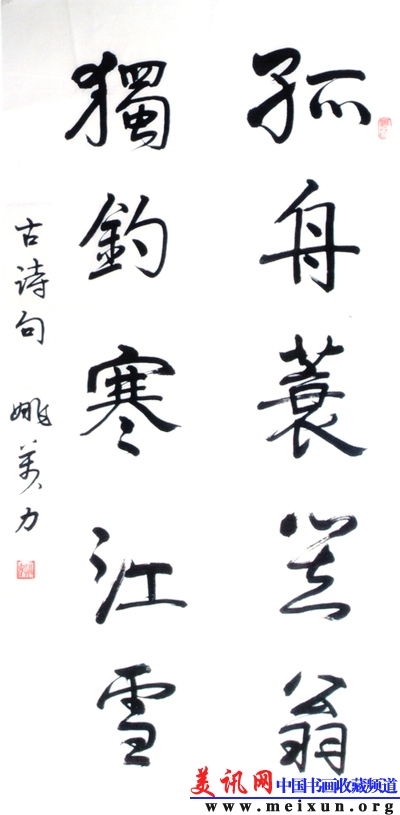 孤舟蓑笠翁
獨釣寒江雪
古诗句 姚 力
美讯网 中国书画收藏频道
www.meixun.org